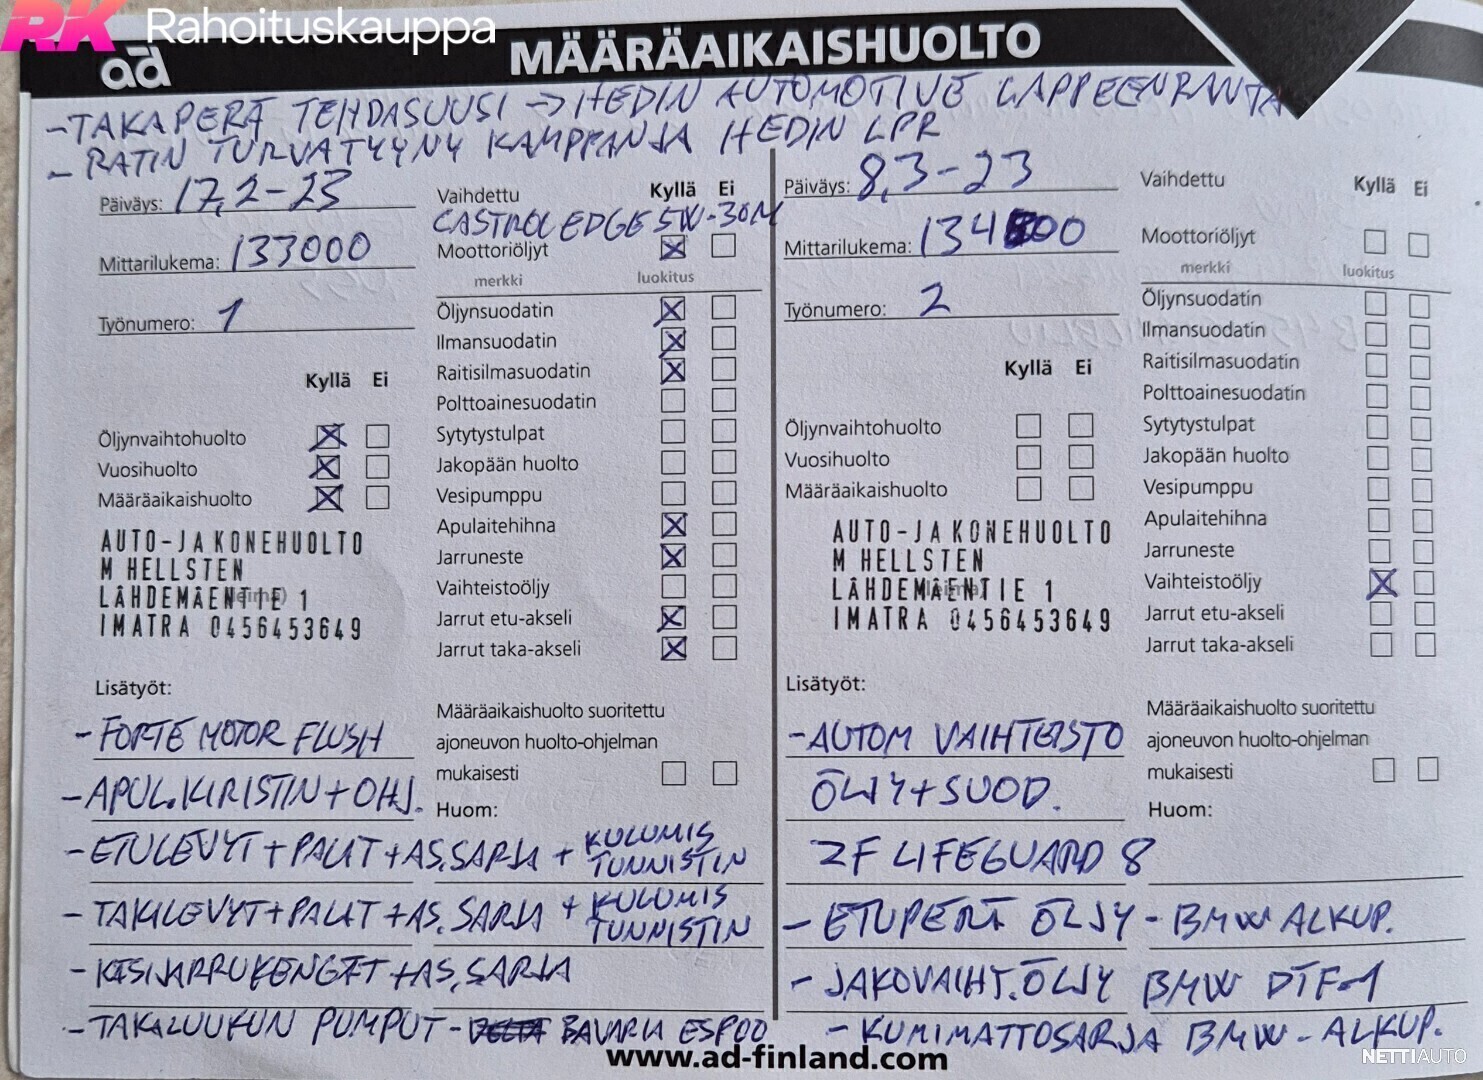 RK Rahoituskauppa
ad
MÄÄRÄAIKAISHUOLTO
-TAKAPERÄ TEHDASUUSI -> HEDIN AUTOMOTIVE LAPPEENRANTA
- RATIN TURVATYYNY KAMPPANJA HEDIN LPR
Päiväys: 17,2-23
Mittarilukema: 133000
Työnumero: 1
Kyllä Ei
Öljynvaihtohuolto
Vuosihuolto
Määräaikaishuolto
AUTO-JA KONEHUOLTO
M HELLSTEN
LÄHDEMÄENTIE 1
IMATRA 0456453649
Vaihdettu Kyllä Ei
CASTROL EDGE 5W-30M
Moottoriöljyt
merkki luokitus
Öljynsuodatin
Ilmansuodatin
Raitisilmasuodatin
Polttoainesuodatin
Sytytystulpat
Jakopään huolto
Vesipumppu
Apulaitehihna
Jarruneste
Vaihteistoöljy
Jarrut etu-akseli
Jarrut taka-akseli
Lisätyöt:
Määräaikaishuolto suoritettu
ajoneuvon huolto-ohjelman
mukaisesti
Huom:
-FORTE MOTOR FLUSH
-APUL.KIRISTIN+OHJ.
-ETULEVYT+PALAT+AS.SARJA + KULUMIS
TUNNISTIN
- TAKALEVYT+PALAT+AS.SARJA + KULUMIS
TUNNISTIN
-KÄSIJARRUKENGÄT+AS.SARJA
-TAKALUUKUN PUMPUT- BAVARIA ESPOO
Päiväys: 8,3-23
Mittarilukema: 134500
Työnumero: 2
Kyllä Ei
Öljynvaihtohuolto
Vuosihuolto
Määräaikaishuolto
AUTO-JA KONEHUOLTO
M HELLSTEN
LÄHDEMÄENTIE 1
IMATRA 0456453649
Vaihdettu Kyllä Ei
Moottoriöljyt
merkki luokitus
Öljynsuodatin
Ilmansuodatin
Raitisilmasuodatin
Polttoainesuodatin
Sytytystulpat
Jakopään huolto
Vesipumppu
Apulaitehihna
Jarruneste
Vaihteistoöljy
Jarrut etu-akseli
Jarrut taka-akseli
Lisätyöt:
Määräaikaishuolto suoritettu
ajoneuvon huolto-ohjelman
mukaisesti
Huom:
-AUTOM VAIHTEISTO
ÖLJY+SUOD.
ZF LIFEGUARD 8
- ETUPERÄ ÖLJY - BMW ALKUP.
- JAKOVAIHT.ÖLJY BMW DTF-1
- KUMIMATTOSARJA BMW - ALKUP.
www.ad-finland.com
NETTIAUTO